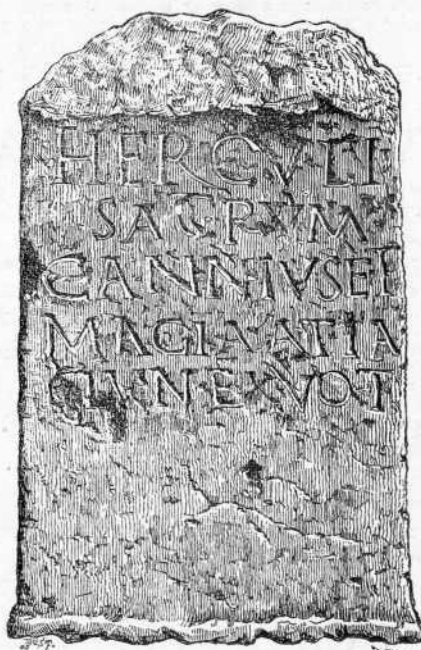 HERCVLI
SACRVM
CANNIVSET
MAGIA ATIA
EX VOT